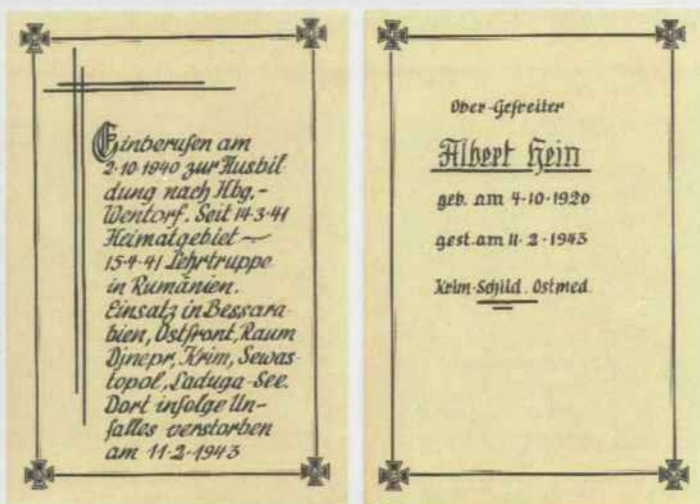 Einberufen am
2·10·1940 zur Ausbil-
dung nach Hbg.-
Wentorf. Seit 14·3·41
Heimatgebiet —
15·4·41 Lehrtruppe
in Rumänien.
Einsatz in Bessara-
bien, Ostfront, Raum
Djnepr, Krim, Sewas-
topol, Laduga-See.
Dort infolge Un-
falles verstorben
am 11·2·1943
Ober-Gefreiter
Albert Hein
geb. am 4·10·1920
gest. am 11·2·1943
Krim-Schild. Ostmed.